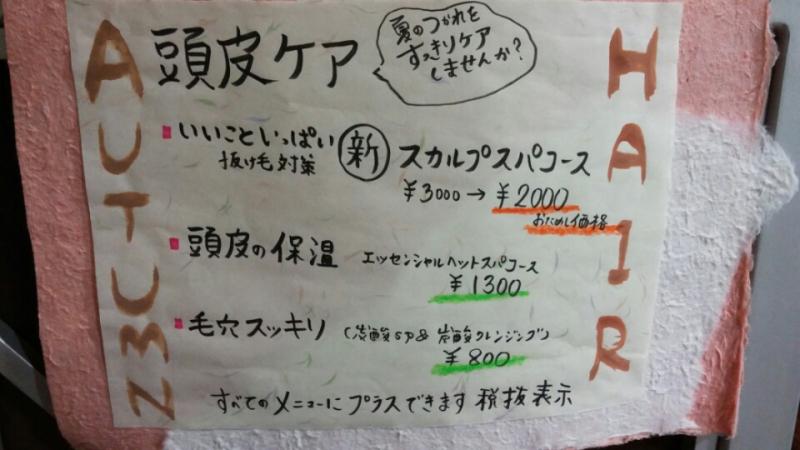 AUTUMN
HAIR
頭皮ケア
夏のつかれを
すっきりケア
しませんか?
いいこといっぱい
抜け毛対策
新 スカルプスパコース
¥3000→¥2000
おためし価格
頭皮の保湿 エッセンシャルヘットスパコース
¥1300
毛穴スッキリ (炭酸SPA& 炭酸クレンジング)
¥800
すべてのメニューにプラスできます 税抜表示